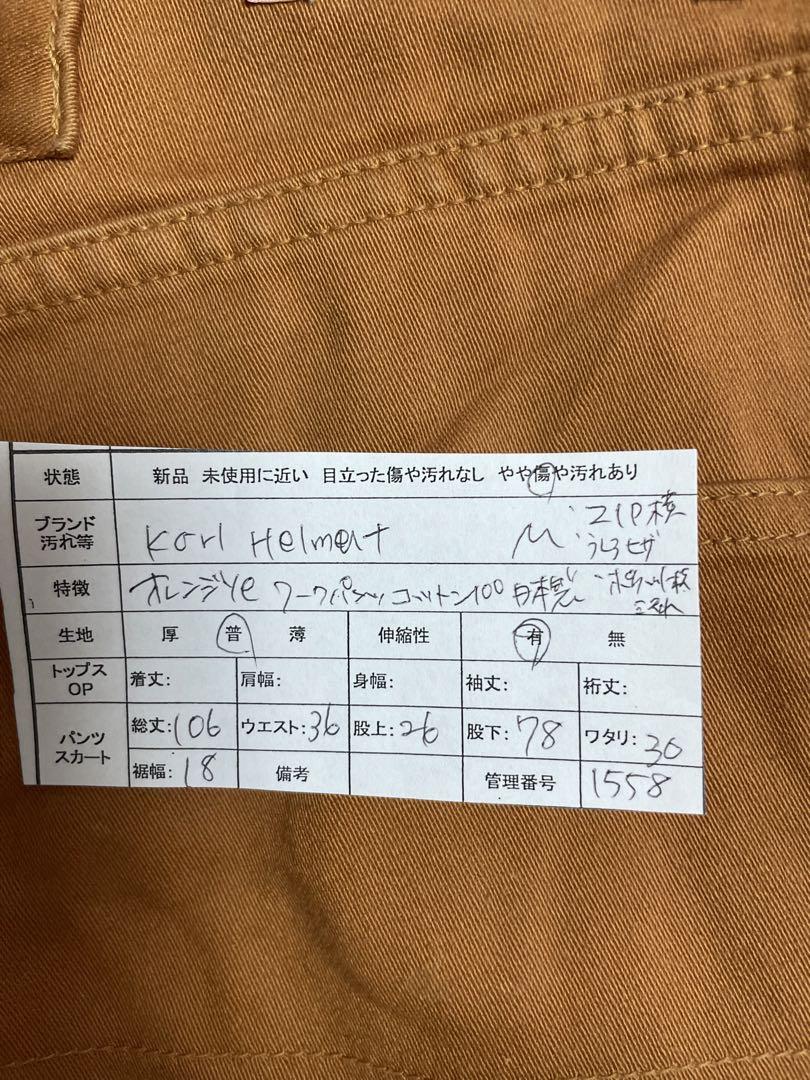 状態 新品 未使用に近い 目立った傷や汚れなし やや傷や汚れあり
ブランド 汚れ等 Karl Helmut M ・ZIP横
・うしろヒザ
特徴 オレンジYe ワークパンツ コットン100 日本製
生地 厚 普 薄 伸縮性 有 無
トップス OP 着丈: 肩幅: 身幅: 袖丈: 裄丈:
パンツ スカート 総丈:106 ウエスト:36 股上:26 股下:78 ワタリ:30
裾幅:18 備考 管理番号 1558